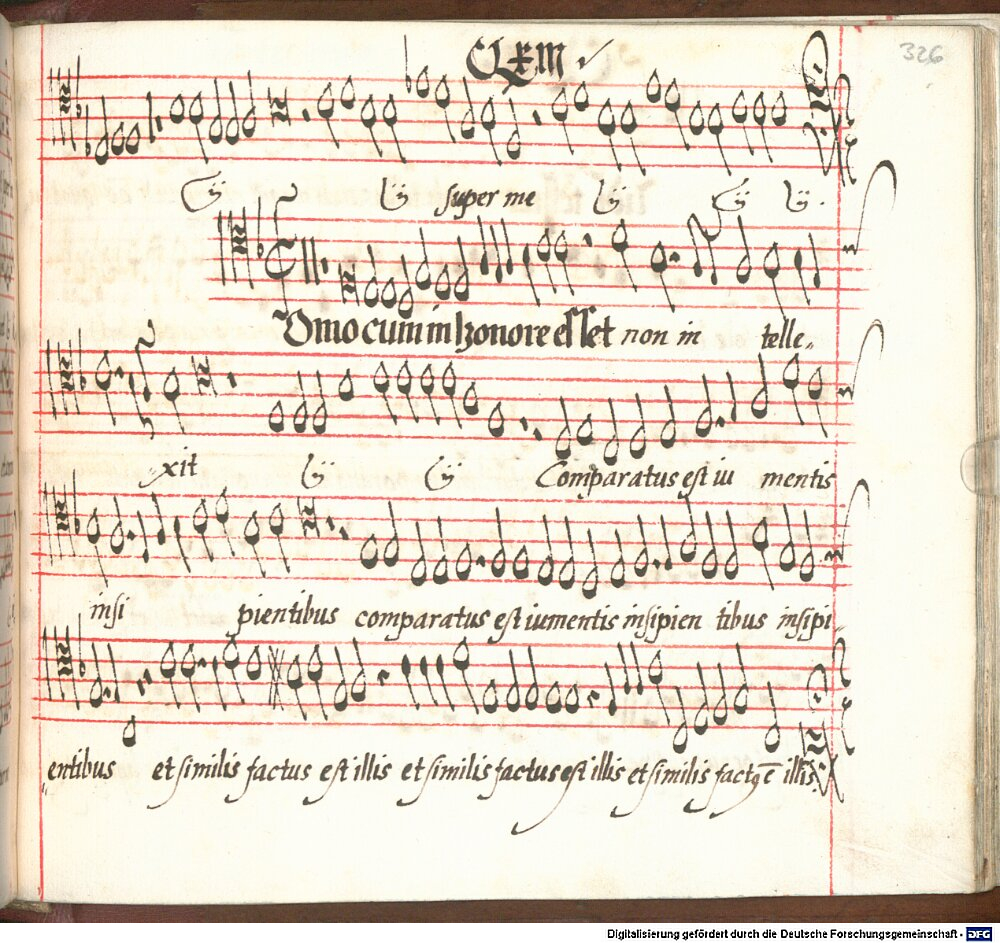 CLXIII
326
ij ij super me ij ij ij.
Omo cum in honore esset non in telle„
„xit ij ij Comparatus est iu mentis
insi pientibus comparatus est iumentis insipien tibus insipi„
„entibus et similis factus est illis et similis factus est illis et similis factꝰ ē illis
Digitalisierung gefördert durch die Deutsche Forschungsgemeinschaft - DFG